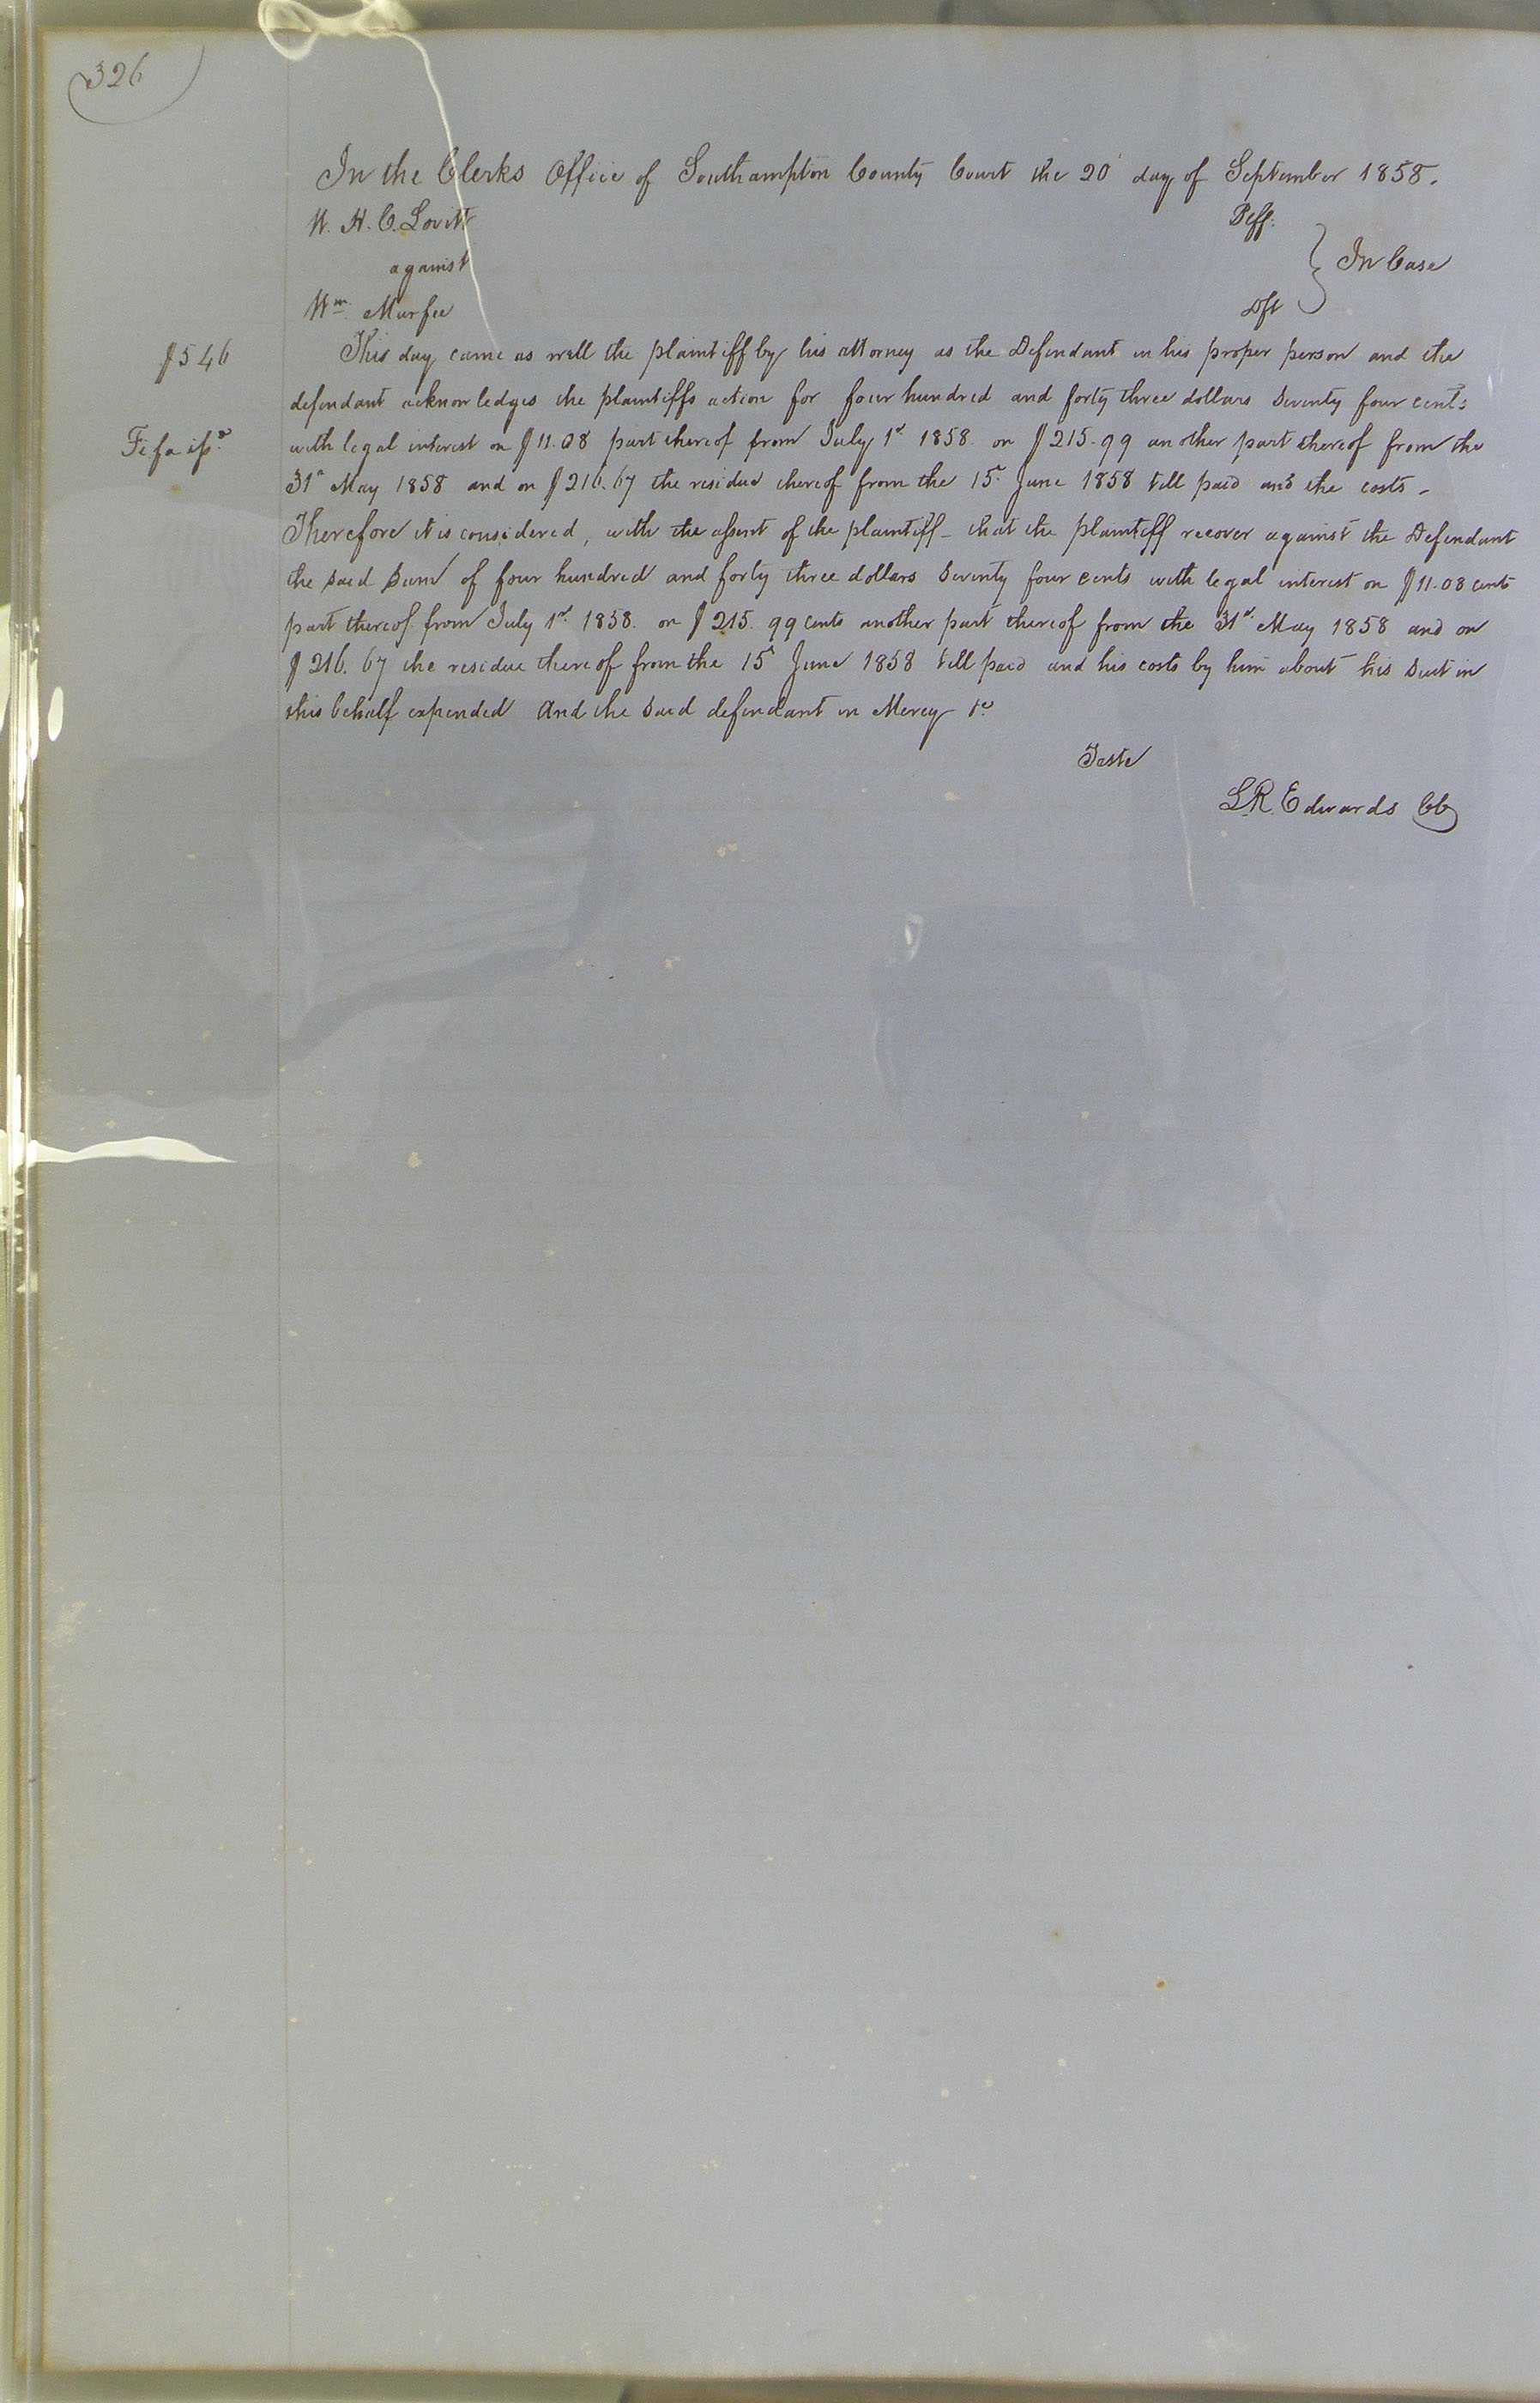 326
In the Clerks Office of Southampton County Court the 20 day of September 1858.
W. H. C. Lovitt Plff.
against In Case
Wm. Murfee Dft
$546 This day came as well the plaintiff by his attorney as the Defendant in his proper person and the
defendant acknowledges the plaintiffs action for four hundred and forty three dollars seventy four cents
Fi fa issd with legal interest on $11.08 part thereof from July 1st 1858. on $215.99 another part thereof from the
31st May 1858 and on $216.67 the residue thereof from the 15 June 1858 till paid and the costs -
Therefore it is considered, with the assent of the plaintiff - that the plaintiff recover against the Defendant
the said sum of four hundred and forty three dollars seventy four cents with legal interest on $11.08 cents
part thereof from July 1st 1858. on $215.99 cents another part thereof from the 31st May 1858 and on
$216.67 the residue thereof from the 15 June 1858 till paid and his costs by him about his suit in
this behalf expended And the said defendant in Mercy &c
Teste
L.R. Edwards CC